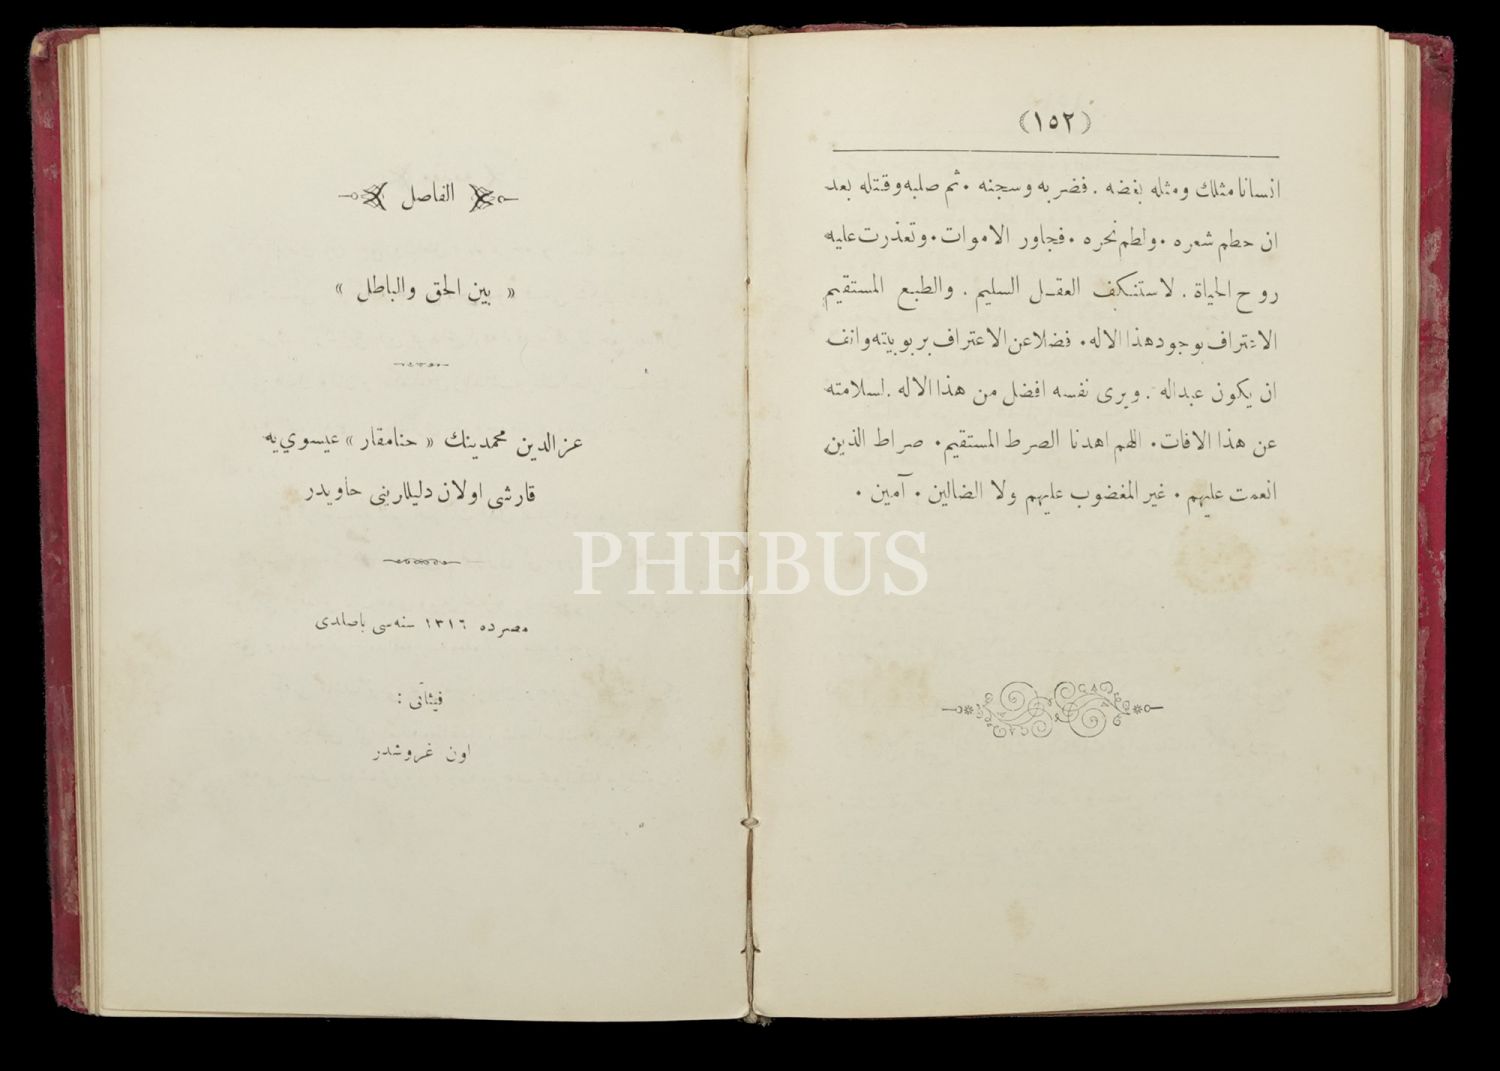 (١٥٢)
انسانا مثلك ومثله بغضه . فضربه وسجنه . ثم صلبه وقتله بعد
ان حطم شعره . ولطم نحره . فجاور الاموات . وتعذرت عليه
روح الحياة . لاستنكف العقل السليم . والطبع المستقيم
الاعتراف بوجود هذا الاله . فضلا عن الاعتراف بربوبيته وانف
ان يكون عبداله . ويرى نفسه افضل من هذا الاله . لسلامته
عن هذا الافات . اللهم اهدنا الصرط المستقيم . صراط الذين
انعمت عليهم . غير المغضوب عليهم ولا الضالين . آمين .
الفاصل
« بين الحق والباطل »
عز الدين محمدينك « حنامقار » عيسوي يه
قارشى اولان دليللارينى حاويدر
مصرده ١٣١٦ سنه سى باصلدى
فيئاتى :
اون غروشدر
PHEBUS